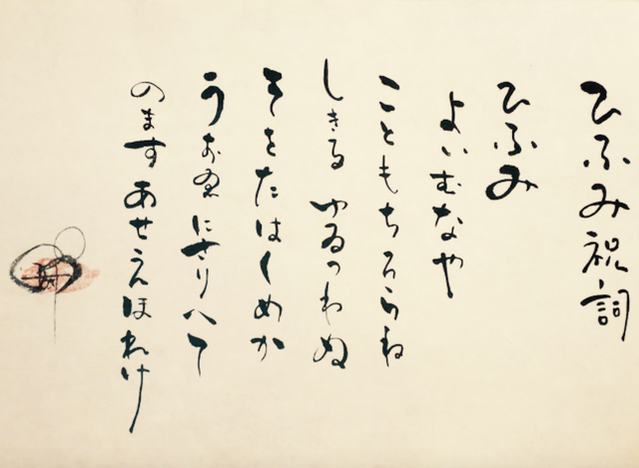 ひふみ祝詞
ひふみ
よいむなや
こともちろらね
しきる ゆゐつわぬ
そをたはくめか
うおゑ にさりへて
のます あせえほれけ